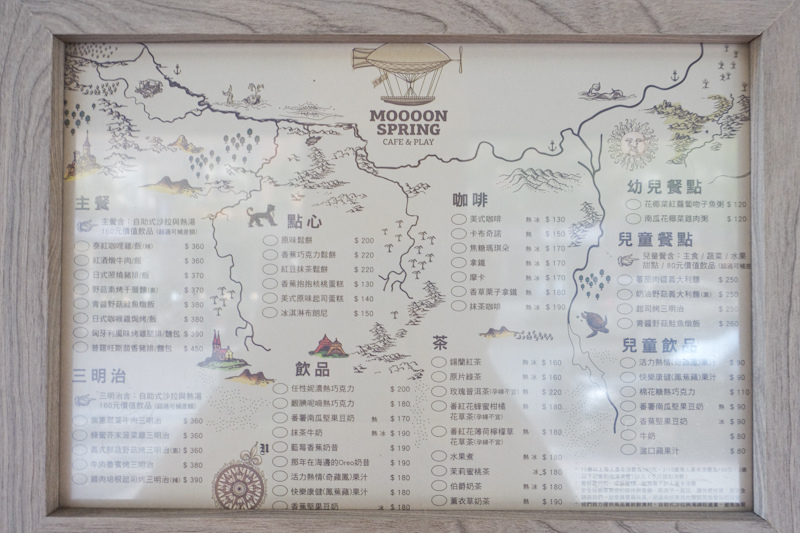 MOOOON
SPRING
CAFE & PLAY
主餐
主餐含：自助式沙拉與熱湯
160元價值飲品(超過可補差額)
泰紅咖哩雞/飯(辣) $ 360
紅酒燉牛肉/飯 $ 360
日式照燒豬排/飯 $ 370
野菇素烤千層麵(素) $ 370
青醬野菇鮭魚燉飯 $ 380
日式咖哩雞焗烤/飯 $ 380
麵包 $ 380
麵包 $ 450
三明治
三明治含：自助式沙拉與熱湯
160元價值飲品(超過可補差額)
牛肉三明治 $ 360
蜂蜜芥末 三明治 $ 360
三明治(素) $ 360
三明治 $ 380
三明治(辣) $ 390
點心
原味鬆餅 $ 200
香蕉巧克力鬆餅 $ 220
紅豆抹茶鬆餅 $ 220
香蕉抱抱核桃蛋糕 $ 130
美式原味起司蛋糕 $ 140
冰淇淋布朗尼 $ 150
飲品
任性妮濃熱巧克力 $ 200
靦腆呢喃熱巧克力 $ 180
番薯南瓜堅果豆奶 熱 $ 170
抹茶牛奶 熱 冰 $ 190
藍莓香蕉奶昔 $ 190
那年在海邊的Oreo奶昔 $ 190
活力熱情(奇蘊風)果汁 $ 180
快樂康健(鳳蕉蘋)果汁 $ 180
香蕉堅果豆奶 冰 $ 180
咖啡
美式咖啡 熱 冰 $ 130
卡布奇諾 熱 $ 150
焦糖瑪琪朵 熱 冰 $ 170
拿鐵 熱 冰 $ 170
摩卡 熱 冰 $ 170
香草栗子拿鐵 熱 $ 180
抹茶咖啡 熱 冰 $ 190
茶
錫蘭紅茶 熱 冰 $ 160
原片綠茶 熱 冰 $ 160
玫瑰普洱茶(孕婦不宜) 熱 $ 220
番紅花蜂蜜柑橘
花草茶(孕婦不宜) 熱 $ 180
番紅花薄荷檸檬草
花草茶(孕婦不宜) 熱 $ 180
水果煮 熱 $ 190
茉莉蜜桃茶 冰 $ 180
伯爵奶茶 熱 冰 $ 180
薰衣草奶茶 熱 $ 190
幼兒餐點
花椰菜紅蘿蔔吻子魚粥 $ 120
南瓜花椰菜雞肉粥 $ 120
兒童餐點
兒童餐含：主食 / 蔬菜 / 水果
甜點 / 80元價值飲品
蕃茄肉醬義大利麵 $ 250
奶油野菇義大利麵(素) $ 250
起司烤三明治 $ 250
青醬野菇鮭魚燉飯 $ 260
兒童飲品
活力熱情 果汁 $ 90
快樂康健(鳳蕉蘋)果汁 $ 90
棉花糖熱巧克力 $ 110
番薯南瓜堅果豆奶 熱 $ 90
香蕉堅果豆奶 冰 $ 90
牛奶 $ 80
進口蘋果汁 $ 80